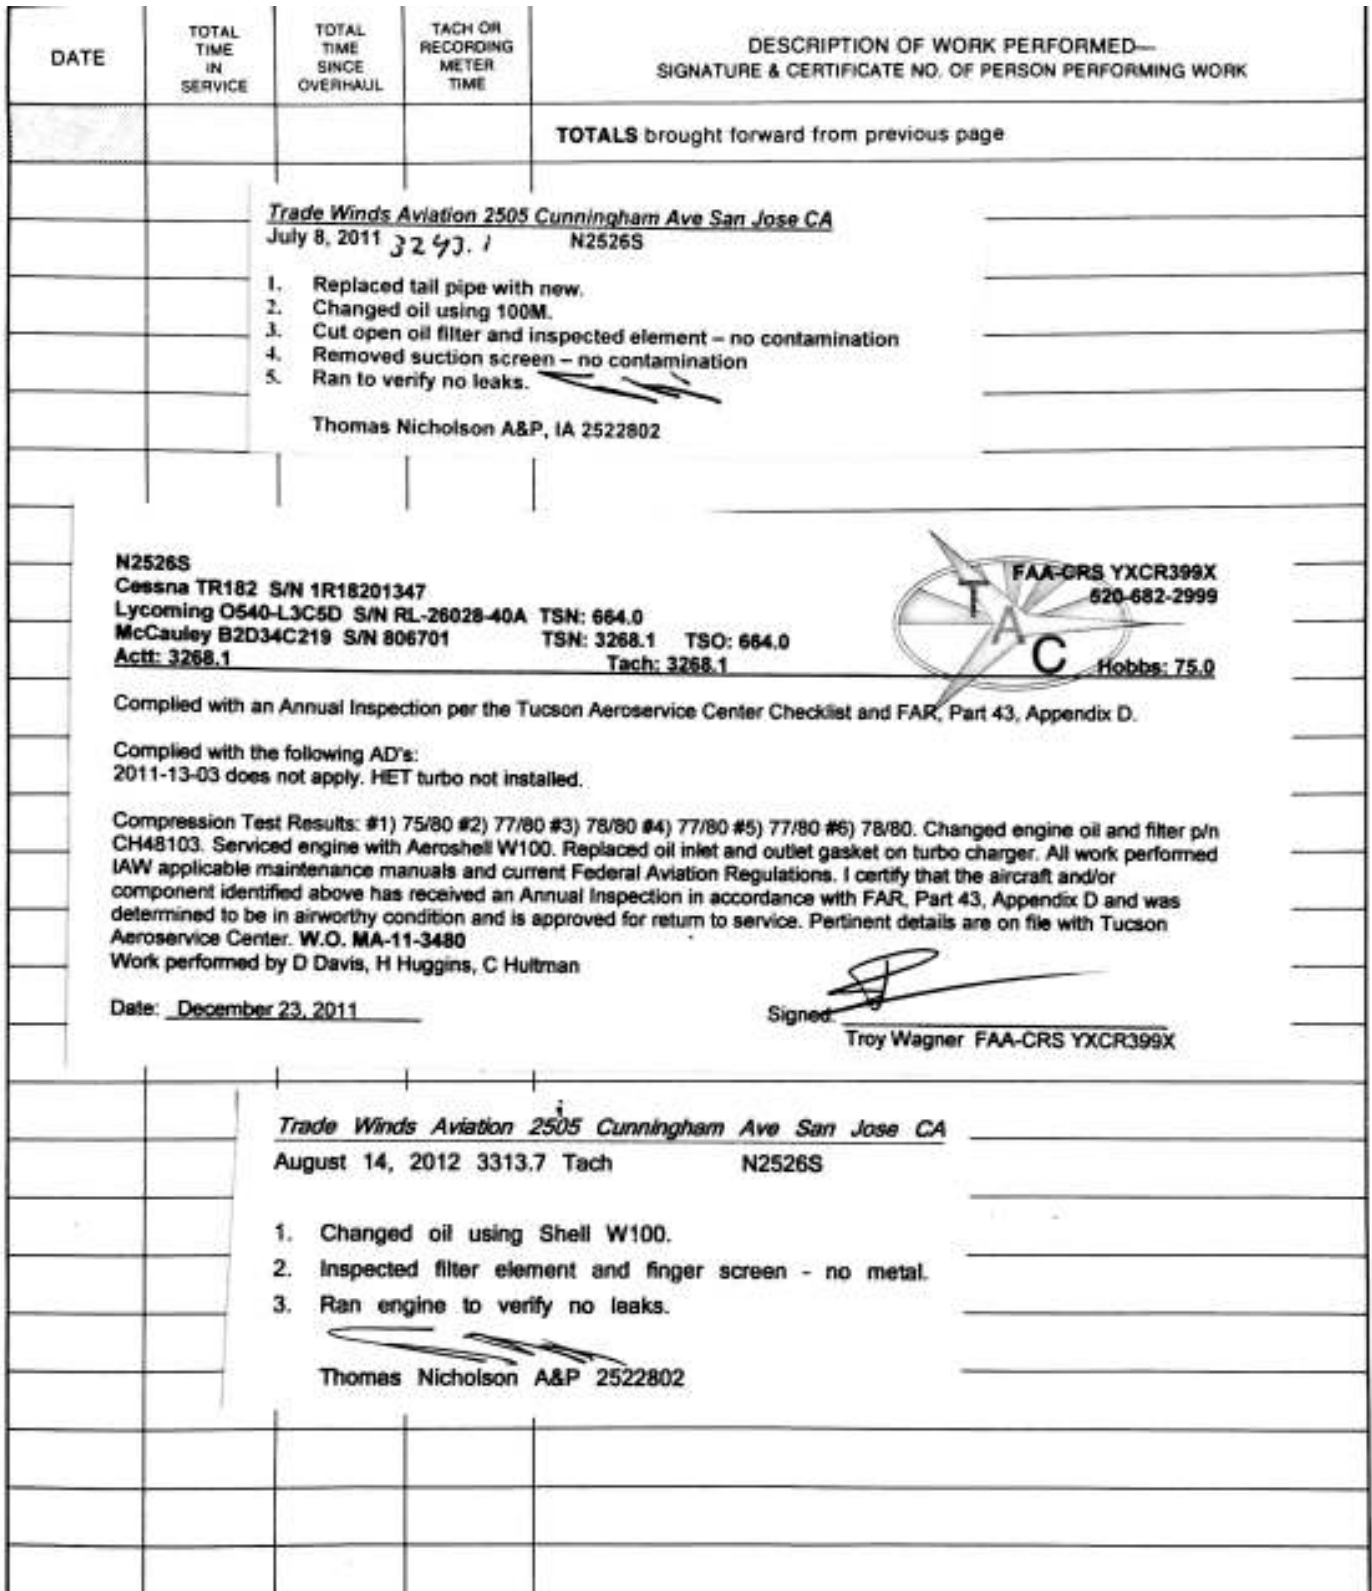 DATE
TOTAL TIME IN SERVICE
TOTAL TIME SINCE OVERHAUL
TACH OR RECORDING METER TIME
DESCRIPTION OF WORK PERFORMED—
SIGNATURE & CERTIFICATE NO. OF PERSON PERFORMING WORK
TOTALS brought forward from previous page
Trade Winds Aviation 2505 Cunningham Ave San Jose CA
July 8, 2011 3243.1 N2526S
1. Replaced tail pipe with new.
2. Changed oil using 100M.
3. Cut open oil filter and inspected element – no contamination
4. Removed suction screen – no contamination
5. Ran to verify no leaks.
Thomas Nicholson A&P, IA 2522802
N2526S
Cessna TR182 S/N 1R18201347
Lycoming O540-L3C5D S/N RL-26028-40A TSN: 664.0
McCauley B2D34C219 S/N 806701 TSN: 3268.1 TSO: 664.0
Actt: 3268.1 Tach: 3268.1
T A C
FAA-CRS YXCR399X
520-682-2999
Hobbs: 75.0
Complied with an Annual Inspection per the Tucson Aeroservice Center Checklist and FAR, Part 43, Appendix D.
Complied with the following AD's:
2011-13-03 does not apply. HET turbo not installed.
Compression Test Results: #1) 75/80 #2) 77/80 #3) 78/80 #4) 77/80 #5) 77/80 #6) 78/80. Changed engine oil and filter p/n
CH48103. Serviced engine with Aeroshell W100. Replaced oil inlet and outlet gasket on turbo charger. All work performed
IAW applicable maintenance manuals and current Federal Aviation Regulations. I certify that the aircraft and/or
component identified above has received an Annual Inspection in accordance with FAR, Part 43, Appendix D and was
determined to be in airworthy condition and is approved for return to service. Pertinent details are on file with Tucson
Aeroservice Center. W.O. MA-11-3480
Work performed by D Davis, H Huggins, C Hultman
Date: December 23, 2011
Signed:
Troy Wagner FAA-CRS YXCR399X
Trade Winds Aviation 2505 Cunningham Ave San Jose CA
August 14, 2012 3313.7 Tach N2526S
1. Changed oil using Shell W100.
2. Inspected filter element and finger screen - no metal.
3. Ran engine to verify no leaks.
Thomas Nicholson A&P 2522802